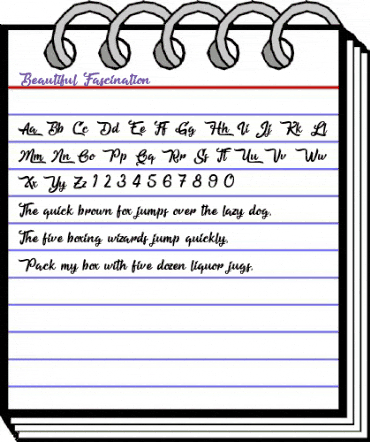 Beautiful Fascination
Aa Bb Cc Dd Ee Ff Gg Hh Ii Jj Kk Ll
Mm Nn Oo Pp Qq Rr Ss Tt Uu Vv Ww
Xx Yy Zz 1 2 3 4 5 6 7 8 9 0
The quick brown fox jumps over the lazy dog.
The five boxing wizards jump quickly.
Pack my box with five dozen liquor jugs.